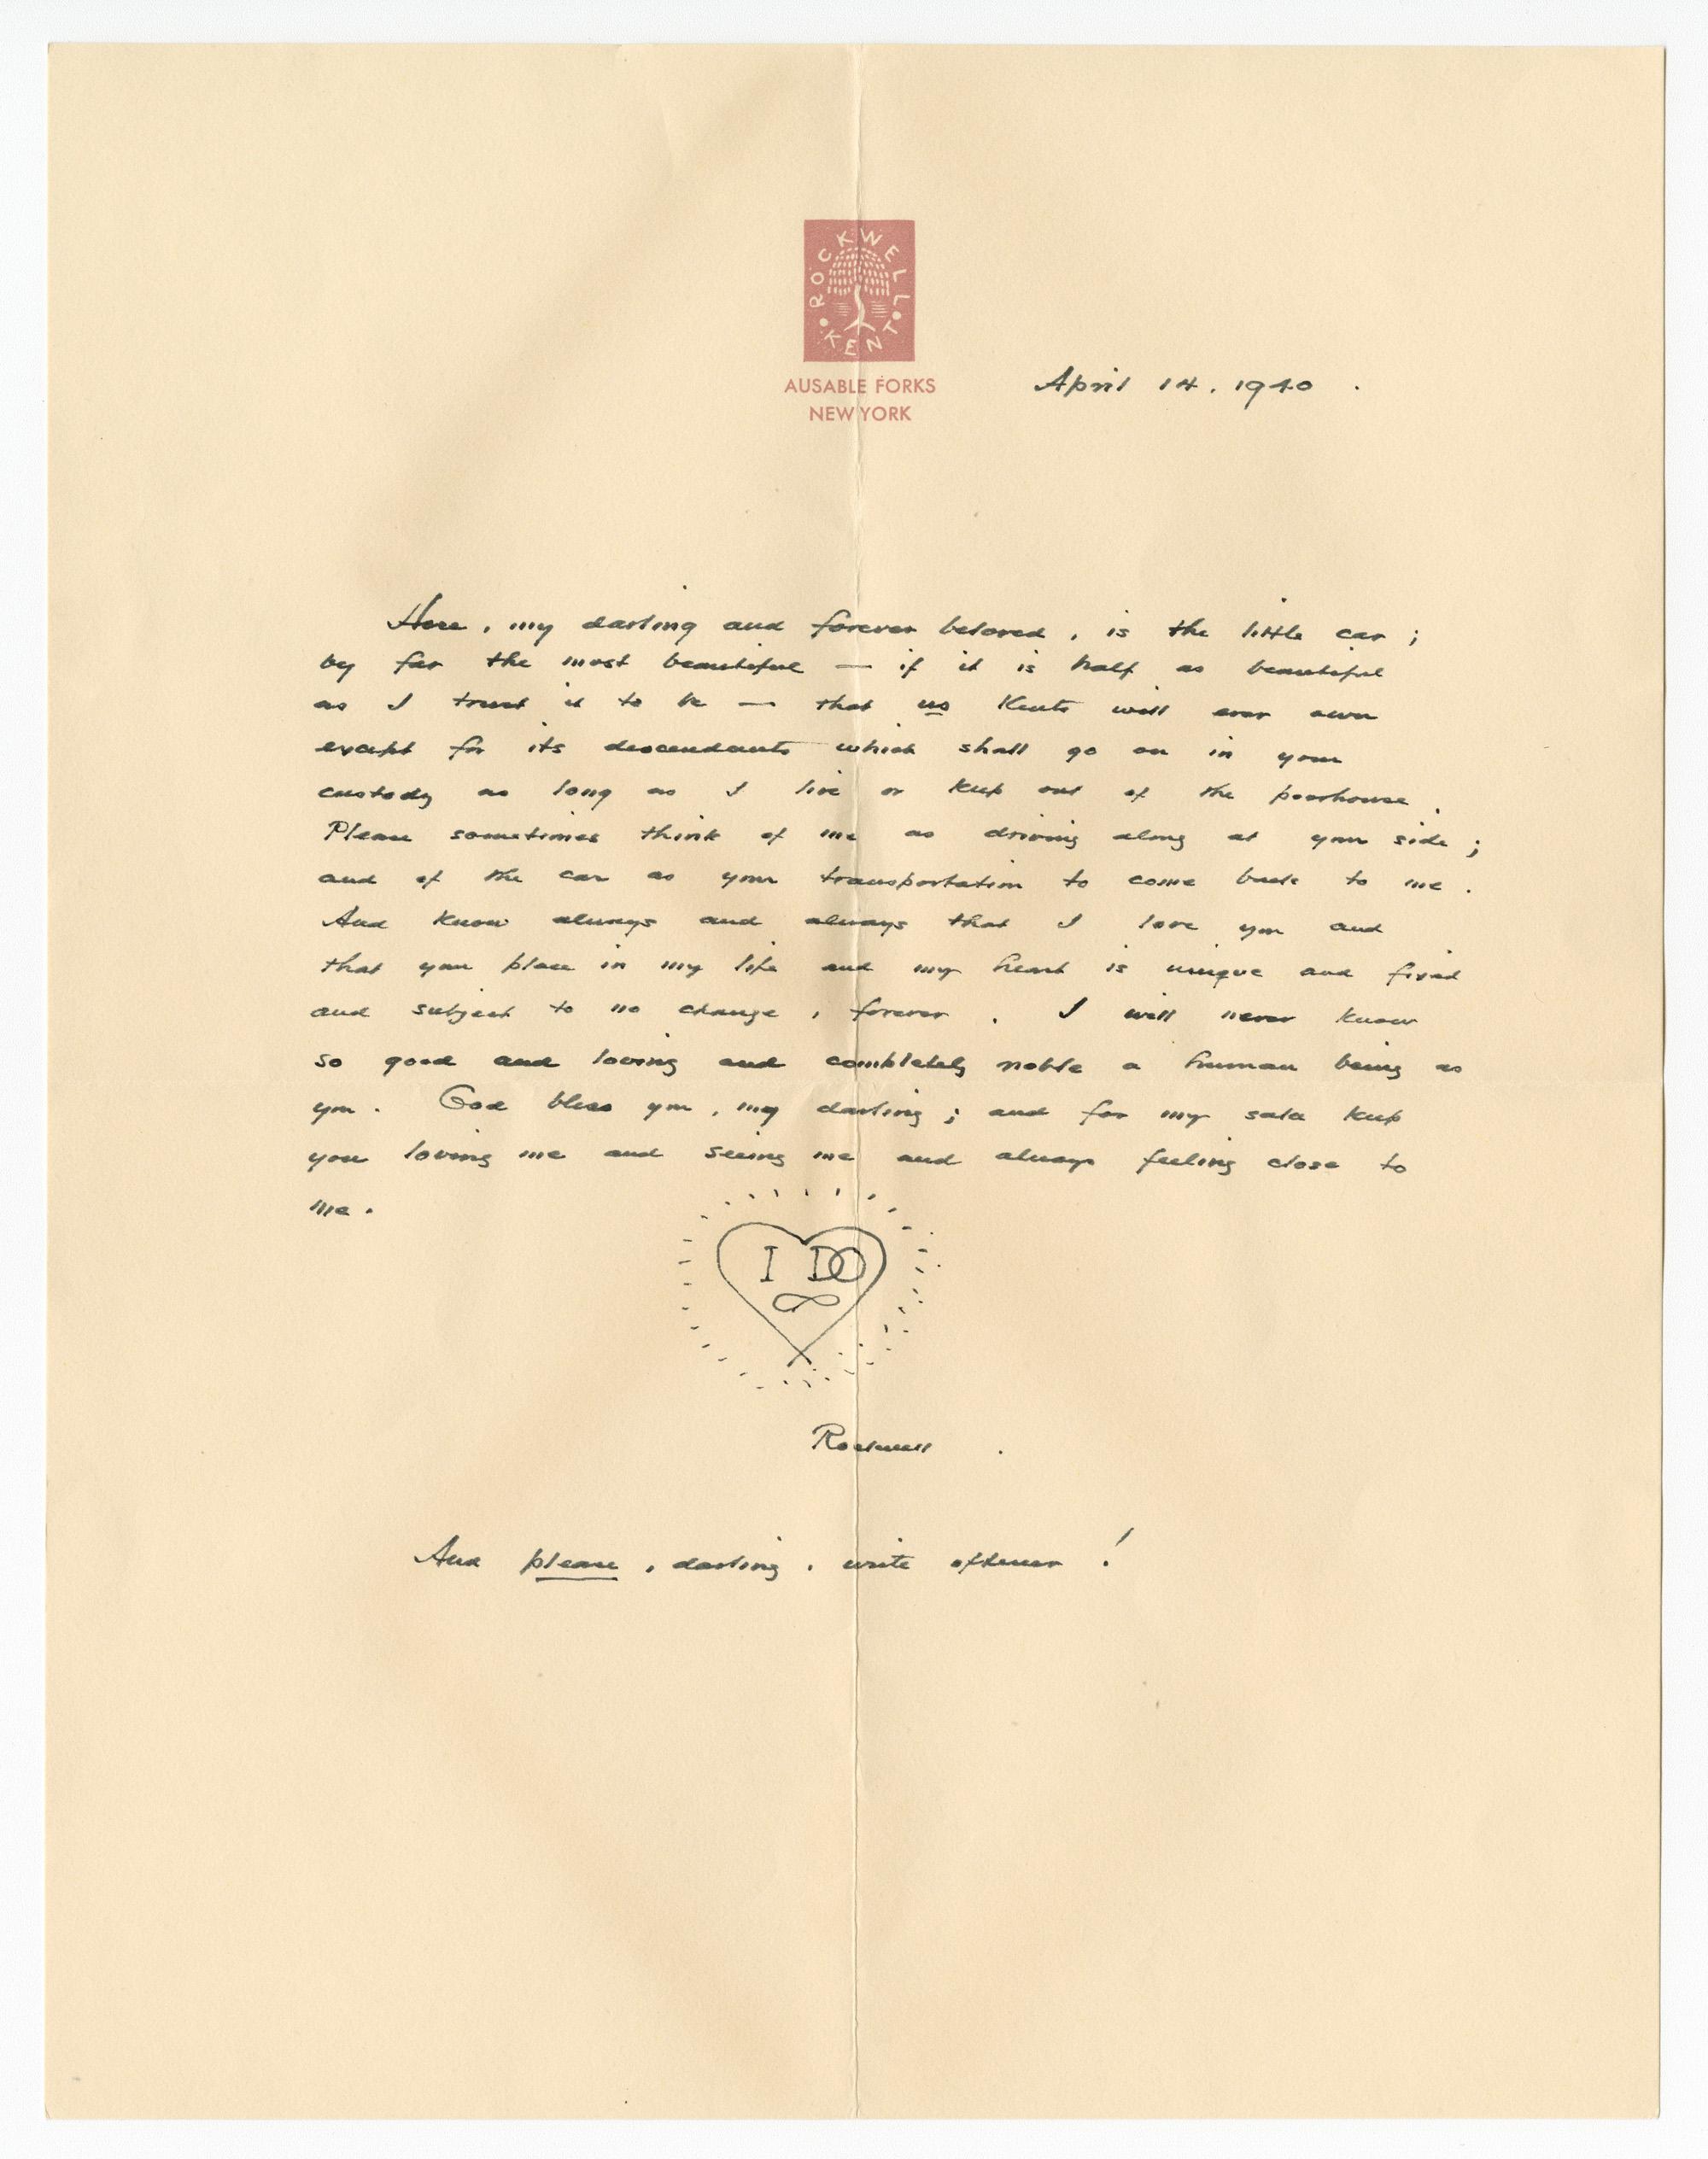 ROCKWELL KENT
AUSABLE FORKS
NEW YORK
April 14, 1940.
Here, my darling and forever beloved, is the little car;
by far the most beautiful — if it is half as beautiful
as I trust it to be — that us Kents will ever own
except for its descendants which shall go on in your
custody as long as I live or keep out of the poorhouse.
Please sometimes think of me as driving along at your side;
and of the car as your transportation to come back to me.
And know always and always that I love you and
that your place in my life and my heart is unique and fixed
and subject to no change, forever. I will never know
so good and loving and completely noble a human being as
you. God bless you, my darling; and for my sake keep
you loving me and seeing me and always feeling close to
me.
I DO
Rockwell.
And please, darling, write oftener!